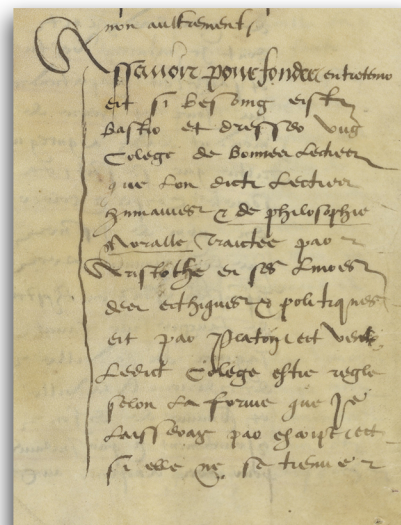 non aultrement /
Assavoir pour fonder entretenir
et si besoing est
bastir et dresser ung
Colege de bonnes Lectres
que lon dict Lectres
humaines & de philosophie
Moralle traictee par
Aristothe en ses Livres
des ecthiques & politiques
et par Platon et veulx
Ledict Colege estre regle
selon la forme que Je
Laisseray par escript et
si elle ne se treuve